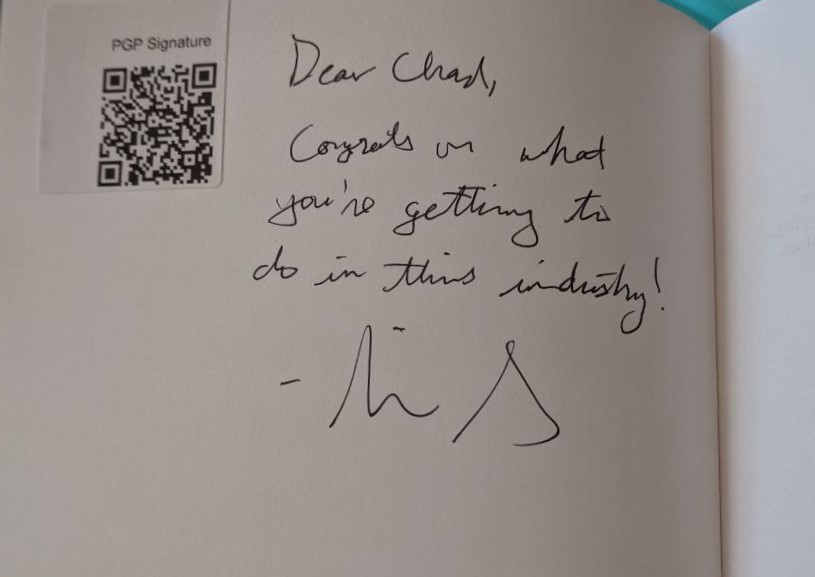 PGP Signature
Dear Chad,
Congrats on what
you're getting to
do in this industry!